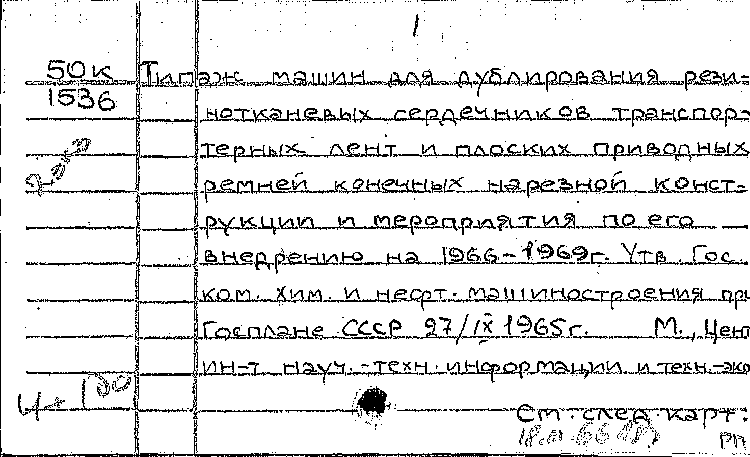 1
50к Типаж машин для дублирования рези-
1536 нотканевых сердечников транспор-
терных лент и плоских приводных
ремней конечных нарезной конст-
рукции и мероприятия по его
внедрению на 1966-1969г. Утв. Гос.
ком. хим. и нефт. машиностроения при
Госплане СССР 27/IX 1965г. М., Цент
ин-т науч.-техн. информации и техн.-эко
См. след. карт.